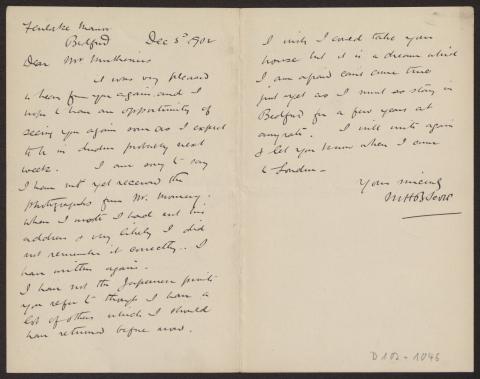 Fenlake Manor
Bedford Dec 5th 1902
Dear Mr Muthesius
I was very pleased
to hear from you again and I
hope to have an opportunity of
seeing you again soon as I expect
to be in London probably next
week. I am sorry to say
I have not yet received the
photographs from Mr.
When I wrote I had not his
address & very likely I did
not remember it correctly. I
have written again.
I have not the Japanese prints
you refer to though I have a
lot of others which I should
have returned before now.
I wish I could take your
house but it is a dream which
I am afraid can't come true
just yet as I must so stay in
Bedford for a few years at
any rate. I will write again
& let you know when I come
to London.
Yours sincerely
M H B Scott
D 102-1046